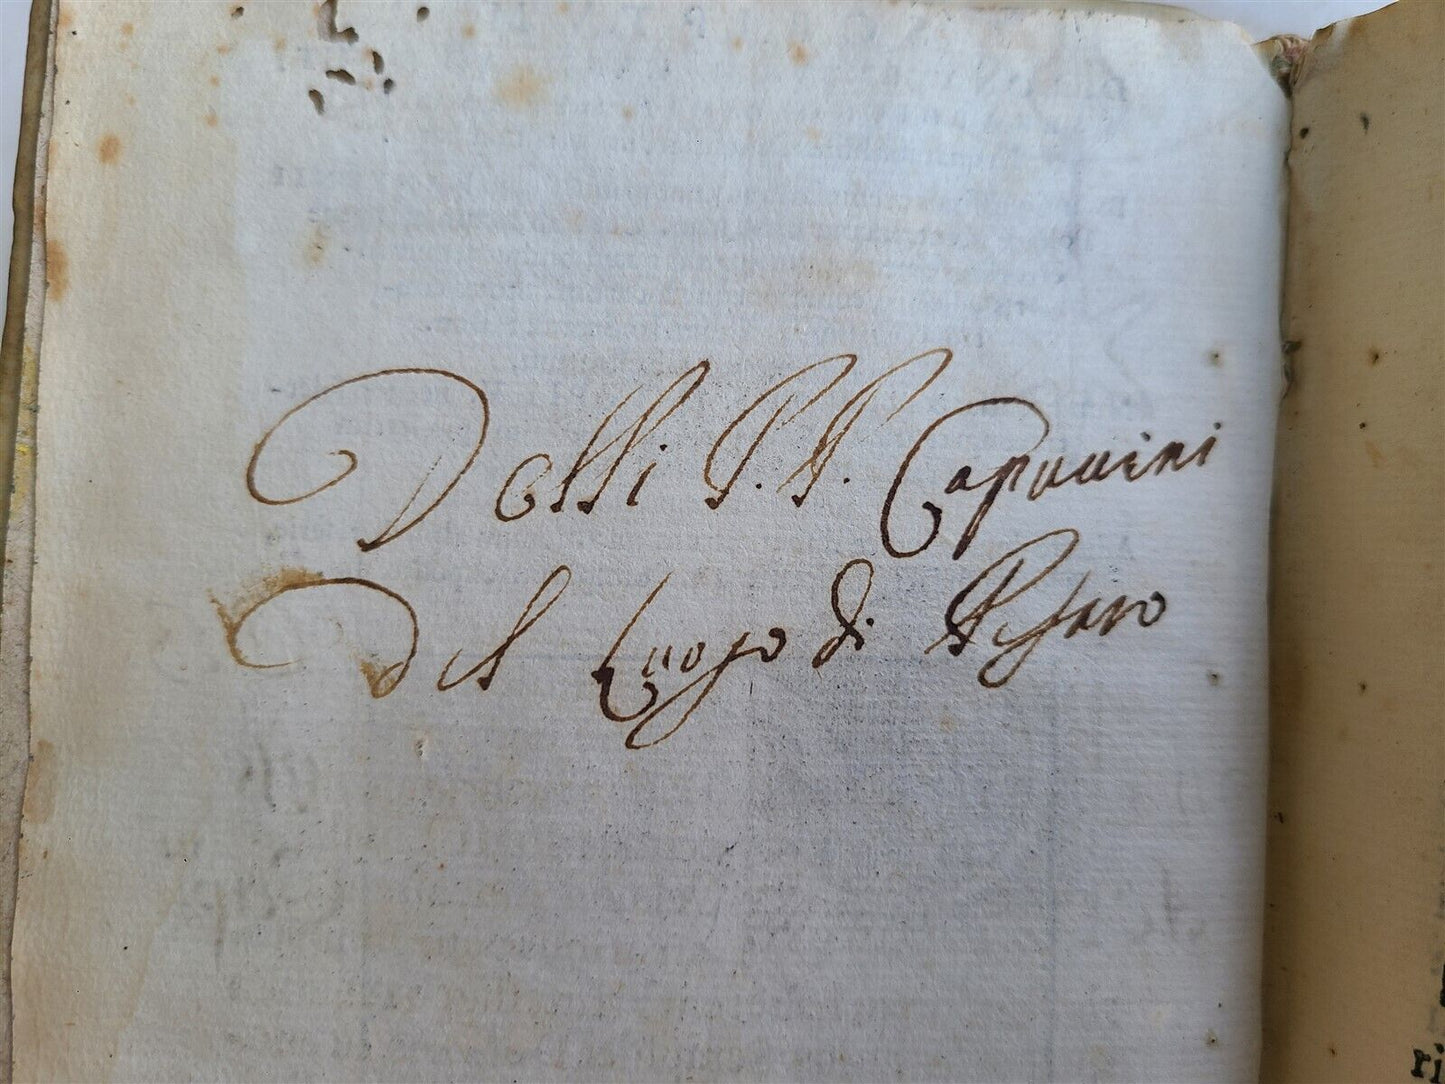 Delli P. P. Capucini
Del Luogo di Pesaro
ri